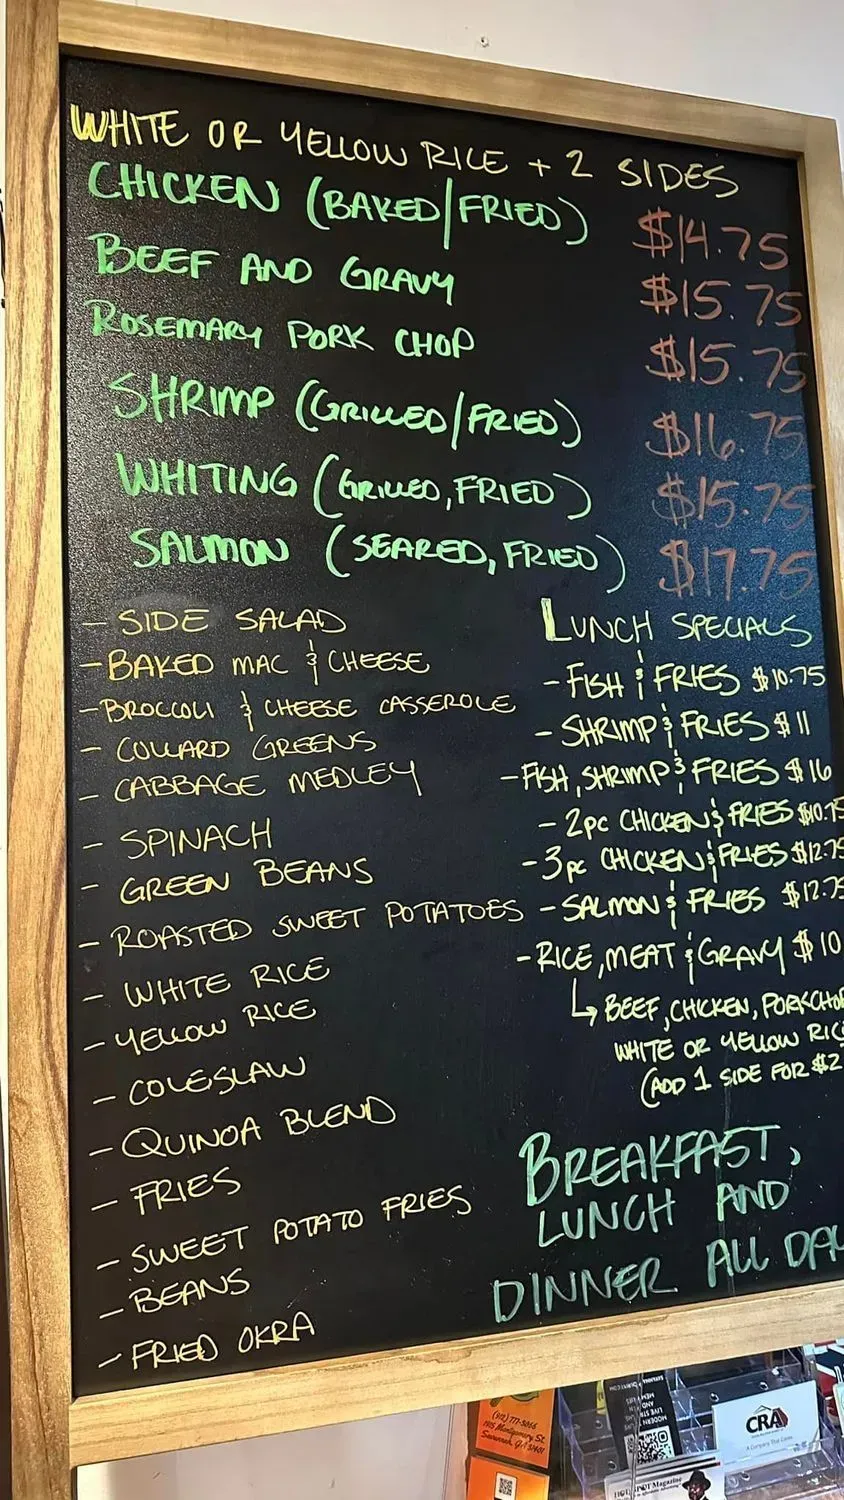 WHITE OR YELLOW RICE + 2 SIDES
CHICKEN (BAKED/FRIED) $14.75
BEEF AND GRAVY $15.75
ROSEMARY PORK CHOP $15.75
SHRIMP (GRILLED/FRIED) $16.75
WHITING (GRILLED, FRIED) $15.75
SALMON (SEARED, FRIED) $17.75
- SIDE SALAD
- BAKED MAC & CHEESE
- BROCCOLI & CHEESE CASSEROLE
- COLLARD GREENS
- CABBAGE MEDLEY
- SPINACH
- GREEN BEANS
- ROASTED SWEET POTATOES
- WHITE RICE
- YELLOW RICE
- COLESLAW
- QUINOA BLEND
- FRIES
- SWEET POTATO FRIES
- BEANS
- FRIED OKRA
LUNCH SPECIALS
- FISH & FRIES $10.75
- SHRIMP & FRIES $11
- FISH, SHRIMP & FRIES $16
- 2PC CHICKEN & FRIES $10.75
- 3PC CHICKEN & FRIES $12.75
- SALMON & FRIES $12.75
- RICE, MEAT & GRAVY $10
↳ BEEF, CHICKEN, PORKCHO
WHITE OR YELLOW RIC
(ADD 1 SIDE FOR $2
BREAKFAST,
LUNCH AND
DINNER ALL DAY
(912) 777-5066
1915 Montgomery St.
Savannah, GA 31401
CRA
Magazine